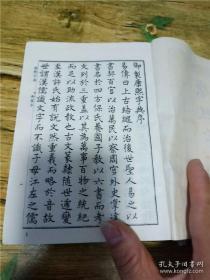 御製康熙字典序
易傳曰上古結繩而治後世聖人易之以
書契百官以治萬民以察周官外史掌達
書名於四方保氏養國子教以六書而考
文列於三重蓋以其為萬事百物之統紀
而足以助流政教也古文篆隸隨世遞變
至漢許氏始有說文然重義而略於音故
世謂漢儒識文字而不識子母江左之儒
孔夫子旧书网